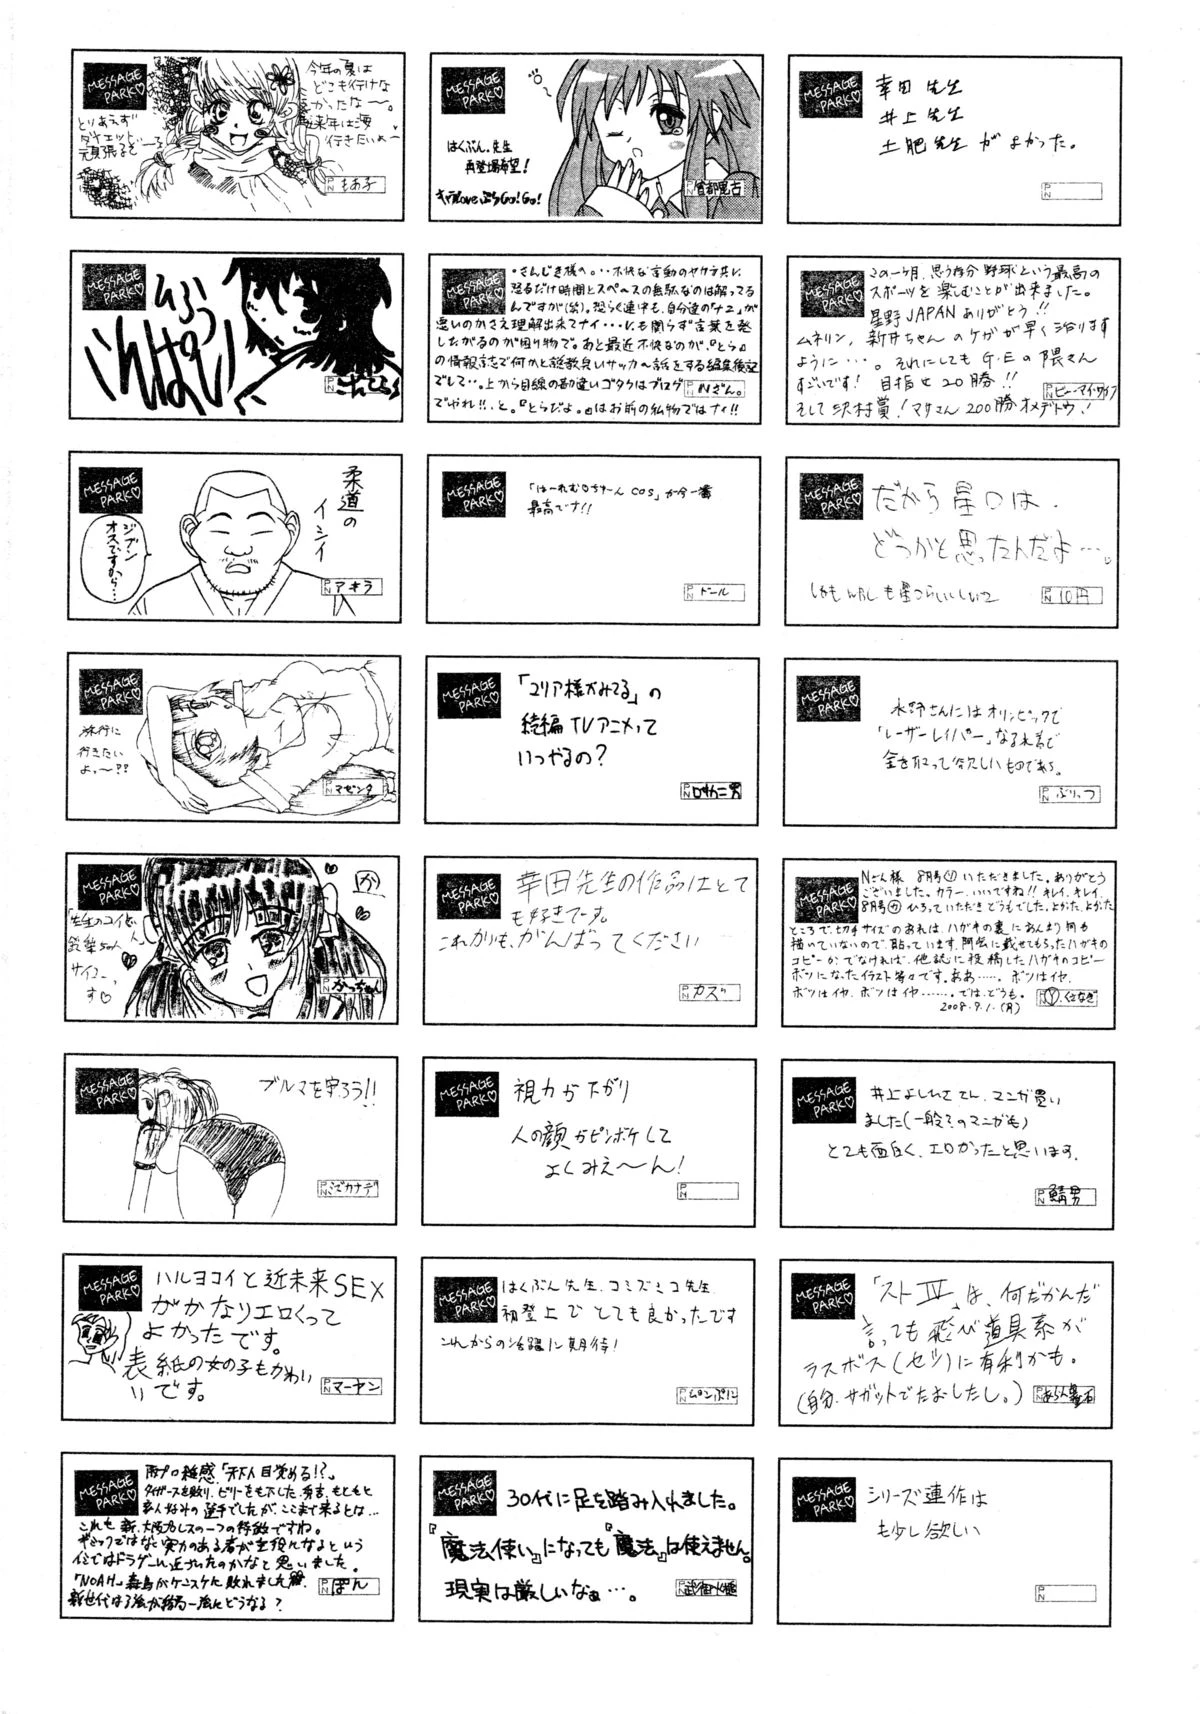 MESSAGE
PARK♡
今年の夏は
どこも行けな
かったな〜。
来年は海
行きたいぬ〜
とりあえず
ダイエット
頑張るぞ〜
PN もあ子
MESSAGE
PARK♡
はくぶん。先生
再登場希望!
PN
MESSAGE
PARK♡
幸田先生
井上先生
土肥先生がよかった。
PN
MESSAGE
PARK♡
PN
MESSAGE
PARK♡
・さんじき様へ。・・不快な言動のヤクラ共に
怒るだけ時間とスペースの無駄なのは解ってる
んですが(笑)。恐らく連中も、自分達のナニが
悪いのかさえ理解出来てナイ・・・にも関らず言葉を発
したがるのが困り物で。あと最近不快なのが、『とら』
の情報誌で何かと説教臭いサッカーの話をする編集後記
でして・・。上から目線の勘違いゴタクはブログ
でやれ!!、と。『とらだよ。』はお前の私物ではナイ!!
PN Nさん。
MESSAGE
PARK♡
この一ヶ月、思う存分野球という最高の
スポーツを楽しむことが出来ました。
星野JAPANありがとう!!
ムネリン,新井ちゃんのケガが早く治ります
ように・・・。それにしてもG.Eの隈さん
すごいです! 目指せ20勝!!
そして沢村賞!マサさん200勝オメデトウ!
PN
MESSAGE
PARK♡
柔道の
イシイ
ジブン
オスですから…
PN アキラ
MESSAGE
PARK♡
「はーれむ口ちゃーんCOS」が今一番
最高です!!
PN ドール
MESSAGE
PARK♡
だから星口は、
どうかと思ったんだよ…。
PN 10円
MESSAGE
PARK♡
旅行に
行きたい
よぉ〜??
PN マゼンタ
MESSAGE
PARK♡
「ユリア様がみてる」の
続編TVアニメって
いつやるの?
PN
MESSAGE
PARK♡
永野さんにはオリンピックで
「レーザーレイパー」なる水着で
金を取って欲しいものである。
PN ぶりっつ
MESSAGE
PARK♡
か
PN かっちゃん
MESSAGE
PARK♡
幸田先生の作品はとて
も好きです。
これからも、がんばってください
PN カズ
MESSAGE
PARK♡
Nさん様 8月号Ⓨいただきました。ありがとう
ございました。カラー、いいですね!!キレイ、キレイ。
8月号 ひろっていただきどうもでした。よかった、よかった
ところで、切手サイズのおれは、ハガキの裏にあんまり何も
描いていないので、貼っています。同会に載せてもらったハガキの
コピーか、でなければ、他誌に投稿したハガキのコピー
ボツになったイラスト等々です。ああ……。ボツはイヤ、
ボツはイヤ、ボツはイヤ……。では、どうも。
2008.9.1.(月)
PN Ⓨ.くさなぎ
MESSAGE
PARK♡
ブルマを守ろう!!
PN ミズカナデ
MESSAGE
PARK♡
視力が下がり
人の顔がピンボケして
よくみえ〜ん!
PN
MESSAGE
PARK♡
井上よしひささん、マンガ買い
ました(一般そのマンガも)
とても面白く、エロかったと思います。
PN 鯖男
MESSAGE
PARK♡
ハルヨコイと近未来SEX
がかなりエロくって
よかったです。
表紙の女の子もかわい
いです。
PN マーヤン
MESSAGE
PARK♡
はくぶん先生、コミズミコ先生
初登上でとても良かったです
これからの活躍に期待!
PN ムンぷに
MESSAGE
PARK♡
「ストⅣ」は、何だかんだ
言っても飛び道具系が
ラスボス(セツ)に有利かも。
(自分、サガットでたおしたし。)
PN
MESSAGE
PARK♡
雨プロ雑感「天下人目覚める!?」
タイガースを破り、ビリーをも下した、有吉、もともと
玄人好みの選手でしたが、ここまで来るとは…
これも新、大阪プロレスの一つの特徴ですね。
ギミックではない実力のある者が主役になるという
イミではドラゲーに近づいたのかなと思いました。
「NOAH」森嶋がケンスケに敗れました。
新世代は3強が結局一強にどうなる?
PN ぽん
MESSAGE
PARK♡
30代に足を踏み入れました。
『魔法使い』になっても『魔法』は使えません。
現実は厳しいなぁ…。
PN
MESSAGE
PARK♡
シリーズ連作は
も少し欲しい
PN